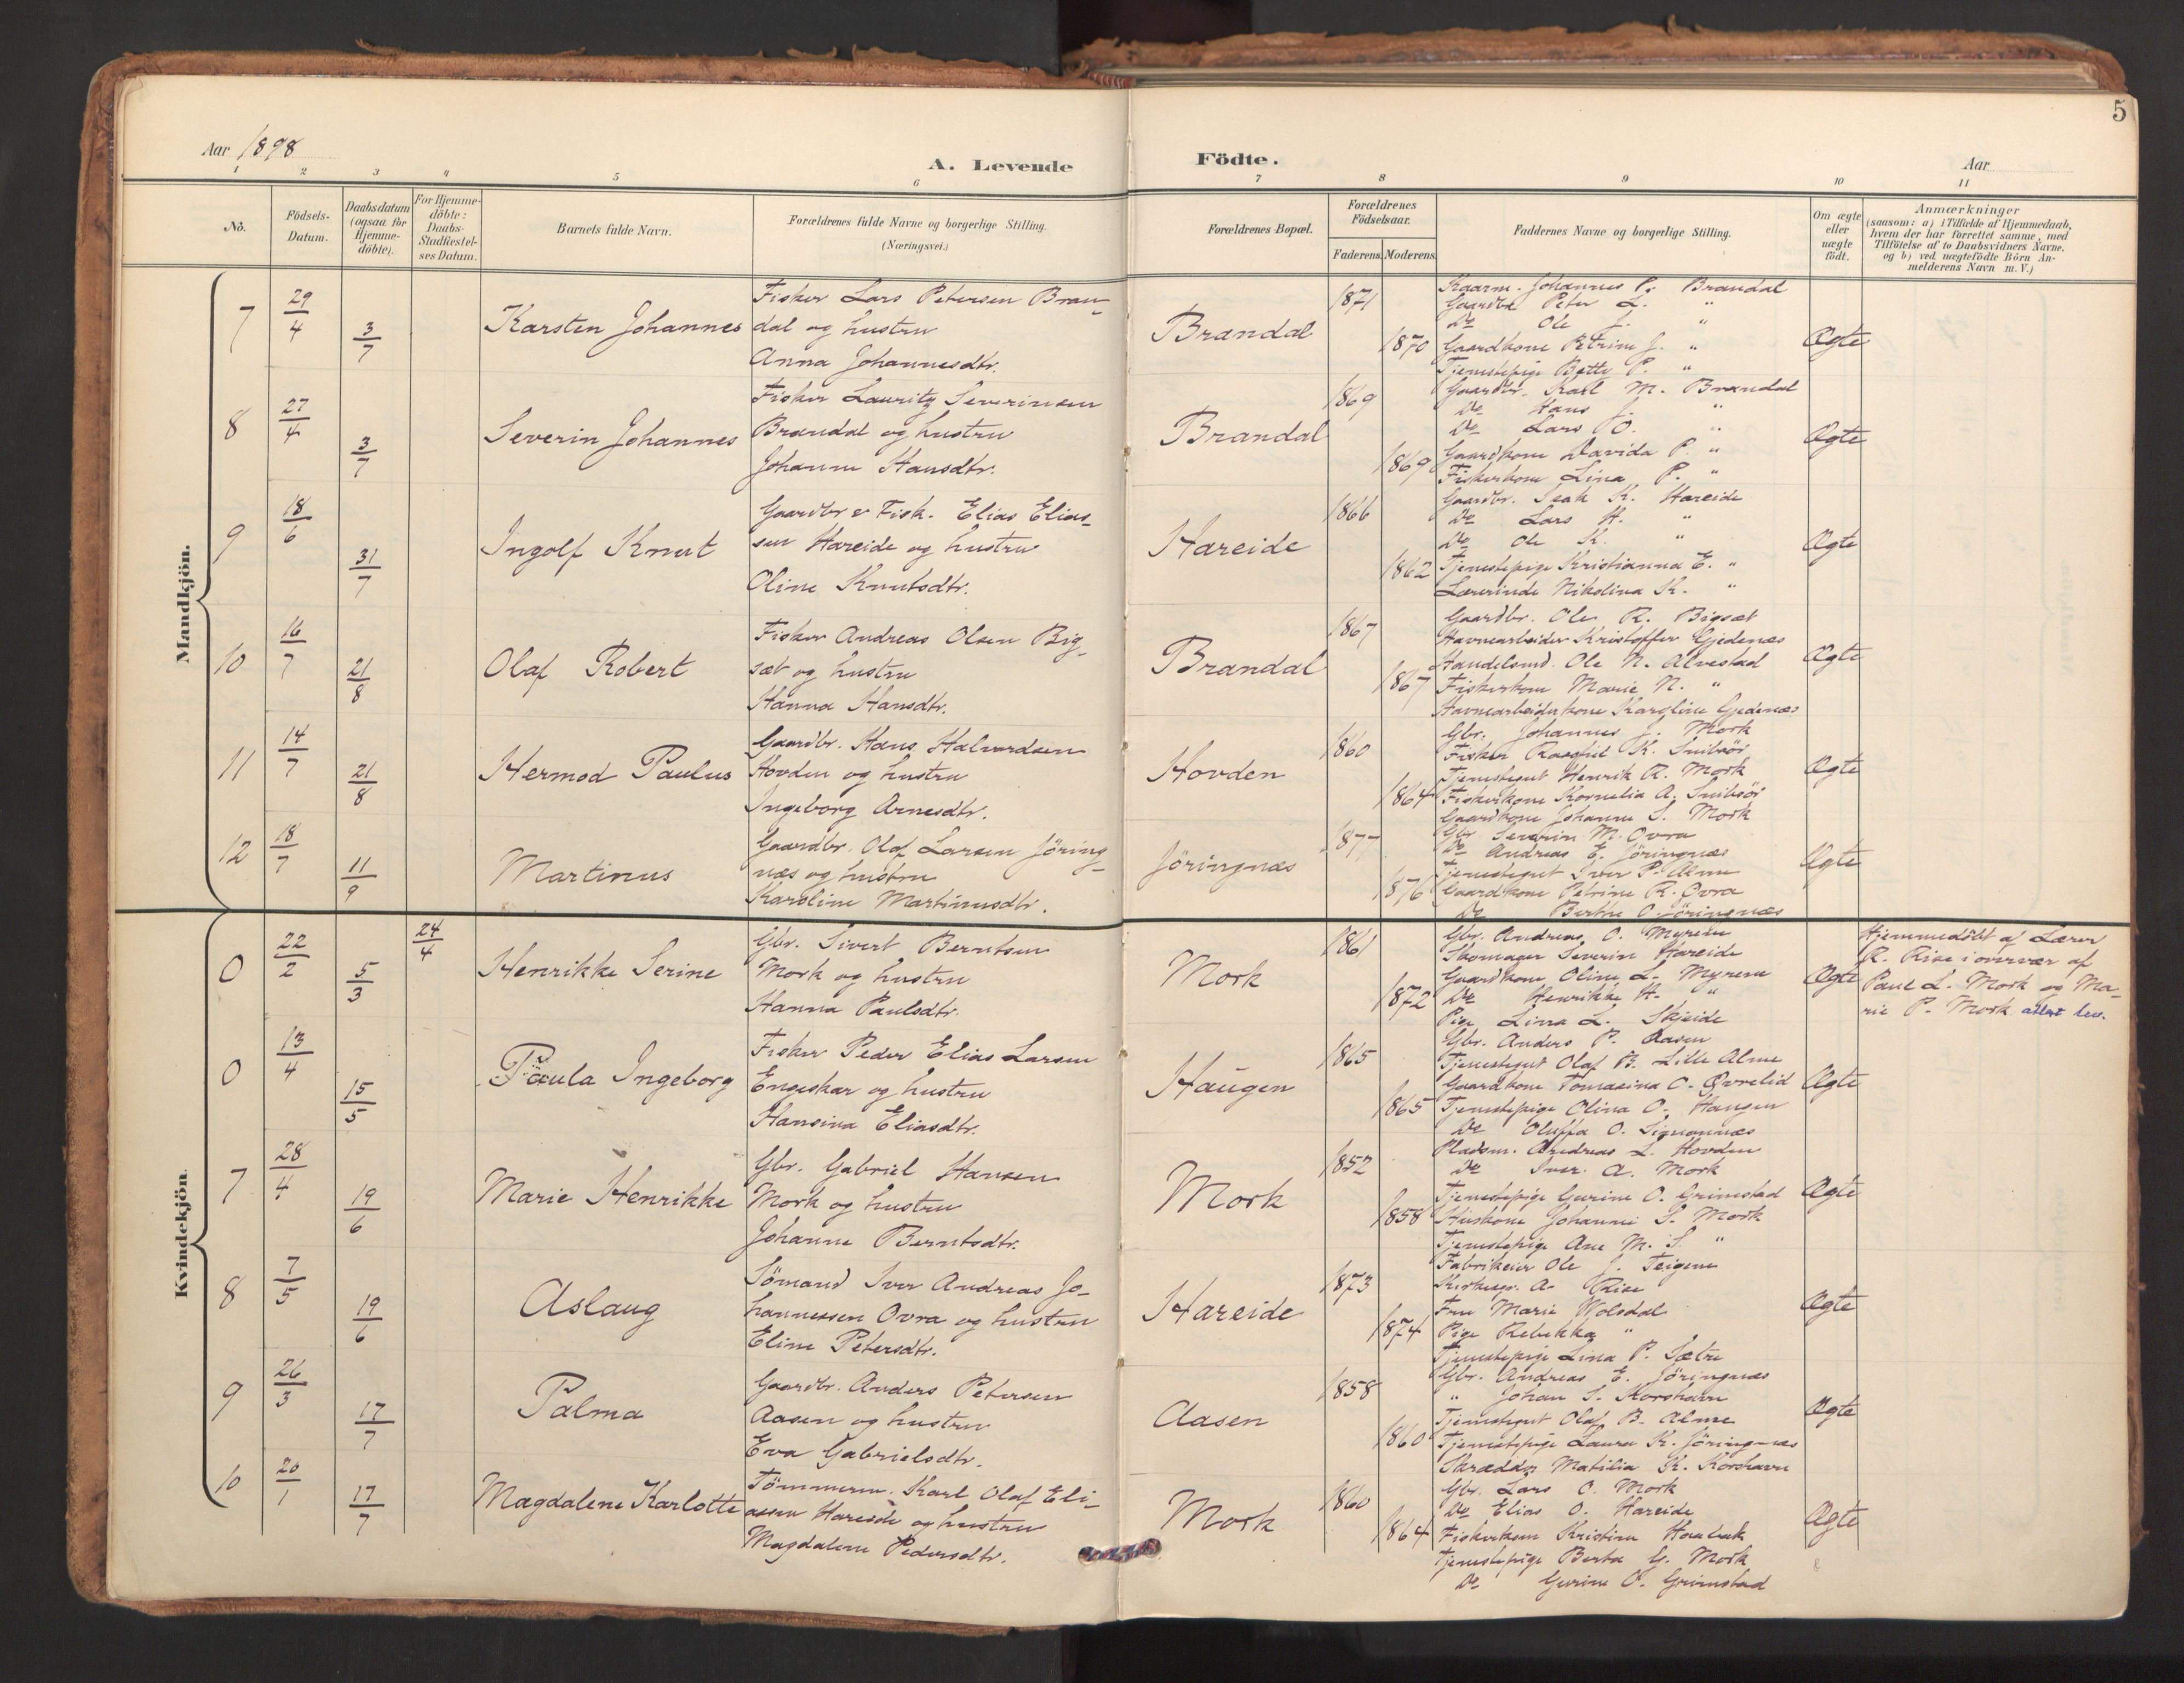 5
Aar 1898
A. Levende
Födte.
Aar
1 2 3 4 5 6 7 8 9 10 11
No.
Födsels-Datum.
Daabsdatum (ogsaa for Hjemme-döbte).
For Hjemme-döbte: Daabs-Stadfæstel-ses Datum.
Barnets fulde Navn.
Forældrenes fulde Navne og borgerlige Stilling.
(Næringsvei.)
Forældrenes Bopæl.
Forældrenes Födselsaar.
Faderens. Moderens.
Faddernes Navne og borgerlige Stilling.
Om ægte eller uægte födt.
Anmærkninger
(saasom: a) i Tilfælde af Hjemmedaab, hvem der har forrettet samme, med Tilföielse af to Daabsvidners Navne, og b) ved uægtefödte Börn An-melderens Navn m. V.)
Mandkjön.
7 29/4 3/7 Karsten Johannes
Fisker Lars Petersen Bran-
dal og hustru
Anna Johannesdtr.
Brandal 1871 1870
Kaarm. Johannes P. Brandal
Gaardbr. Peter L. "
Do Ole J. "
Gaardkone Petrine J. "
Tjenestepige Betty P. "
Ægte
8 27/4 3/7 Severin Johannes
Fisker Lauritz Severinsen
Brandal og hustru
Johanne Hansdtr.
Brandal 1869 1869
Gaardbr. Karl M. Brandal
Do Hans J. "
Do Lars O. "
Gaardkone Davida P. "
Fiskerkone Lina P. "
Ægte
9 18/6 31/7 Ingolf Knut
Gaardbr & Fisk. Elias Elias-
sen Hareide og hustru
Oline Knutsdtr.
Hareide 1866 1862
Gaardbr. Isak K. Hareide
Do Lars H. "
Do Ole K. "
Tjenestepige Kristianna E. "
Lærerinde Nikolina K. "
Ægte
10 16/7 21/8 Olaf Robert
Fisker Andreas Olsen Big-
sæt og hustru
Hanna Hansdtr.
Brandal 1867 1867
Gaardbr. Ole R. Bigsæt
Havnearbeider Kristoffer Gjedenæs
Handelsmd. Ole N. Alvestad
Fiskerkone Marie N. "
Havnearbeiderkone Karoline Gjedenæs
Ægte
11 14/7 21/8 Hermod Paulus
Gaardbr. Hans Halvardsen
Hovden og hustru
Ingeborg Arnesdtr.
Hovden 1860 1864
Gbr. Johannes J. Mork
Fisker K. Snibsör
Tjenestegut Henrik R. Mork
Fiskerkone Kornelia A. Snibsör
Gaardkone Johanne S. Mork
Ægte
12 18/7 11/9 Martinus
Gaardbr. Olaf Larsen Jöring-
næs og hustru
Karoline Martinusdtr.
Jöringnæs 1877 1876
Gbr. Severin M. Ovra
Do Andreas E. Jöringnæs
Tjenestegut Iver P. Alme
Gaardkone Petrine R. Ovra
Do Berthe O. Jöringnæs
Ægte
Kvindekjön
0 22/2 5/3 24/4 Henrikke Serine
Gbr. Sivert Berntsen
Mork og hustru
Hanna Paulsdtr.
Mork 1861 1872
Gbr. Andreas O. Myrene
Skomager Severin Hareide
Gaardkone Oline L. Myrene
Do Henrikke H. "
Pige Linna L. Skjeide
Ægte
Hjemmedöbt af Lærer
R. Rise i overvær af
Paul L. Mork og Ma-
rie P. Mork. lev.
0 13/4 15/5 Paula Ingeborg
Fisker Peder Elias Larsen
Engeskar og hustru
Hansina Eliasdtr.
Haugen 1865 1865
Gbr. Anders P. Aasen
Tjenestegut Olaf B. Lille Alme
Gaardkone Tomasina O. Øvrelid
Tjenestepige Olina O. Haugen
Do Oluffa O. Simonnæs
Ægte
7 28/4 19/6 Marie Henrikke
Gbr. Gabriel Hansen
Mork og hustru
Johanne Berntsdtr.
Mork 1852 1858
Pladsm. Andreas L. Hovden
Do Iver A. Mork
Tjenestepige Gurine O. Grimstad
Huskone Johanne S. Mork
Tjenestepige Ane M. S. "
Ægte
8 7/5 19/6 Aslaug
Sömand Iver Andreas Jo-
hannessen Ovra og hustru
Eline Petersdtr.
Hareide 1873 1874
Fabrikeier Ole J. Teigene
Kirkesgr. A. Rise
Fru Marie Wolsdal
Pige Rebekka "
Tjenestepige Lina P. Sætre
Ægte
9 26/3 17/7 Palma
Gaardbr. Anders Petersen
Aasen og hustru
Eva Gabrielsdtr.
Aasen 1858 1860
Gbr. Andreas E. Jöringnæs
" Johan S. Korshavn
Tjenestegut Olaf B. Alme
Tjenestepige Laura K. Jöringnæs
Skrædder Matilia K. Korshavn
Ægte
10 20/1 17/7 Magdalene Karlotte
Tömmerm. Karl Olaf Eli-
assen Hareide og hustru
Magdalene Pedersdtr.
Mork 1860 1864
Gbr. Lars O. Mork
Do Elias O. Hareide
Fiskerkone Kristine
Tjenestepige Berta G. Mork
Do Gurine O. Grimstad
Ægte